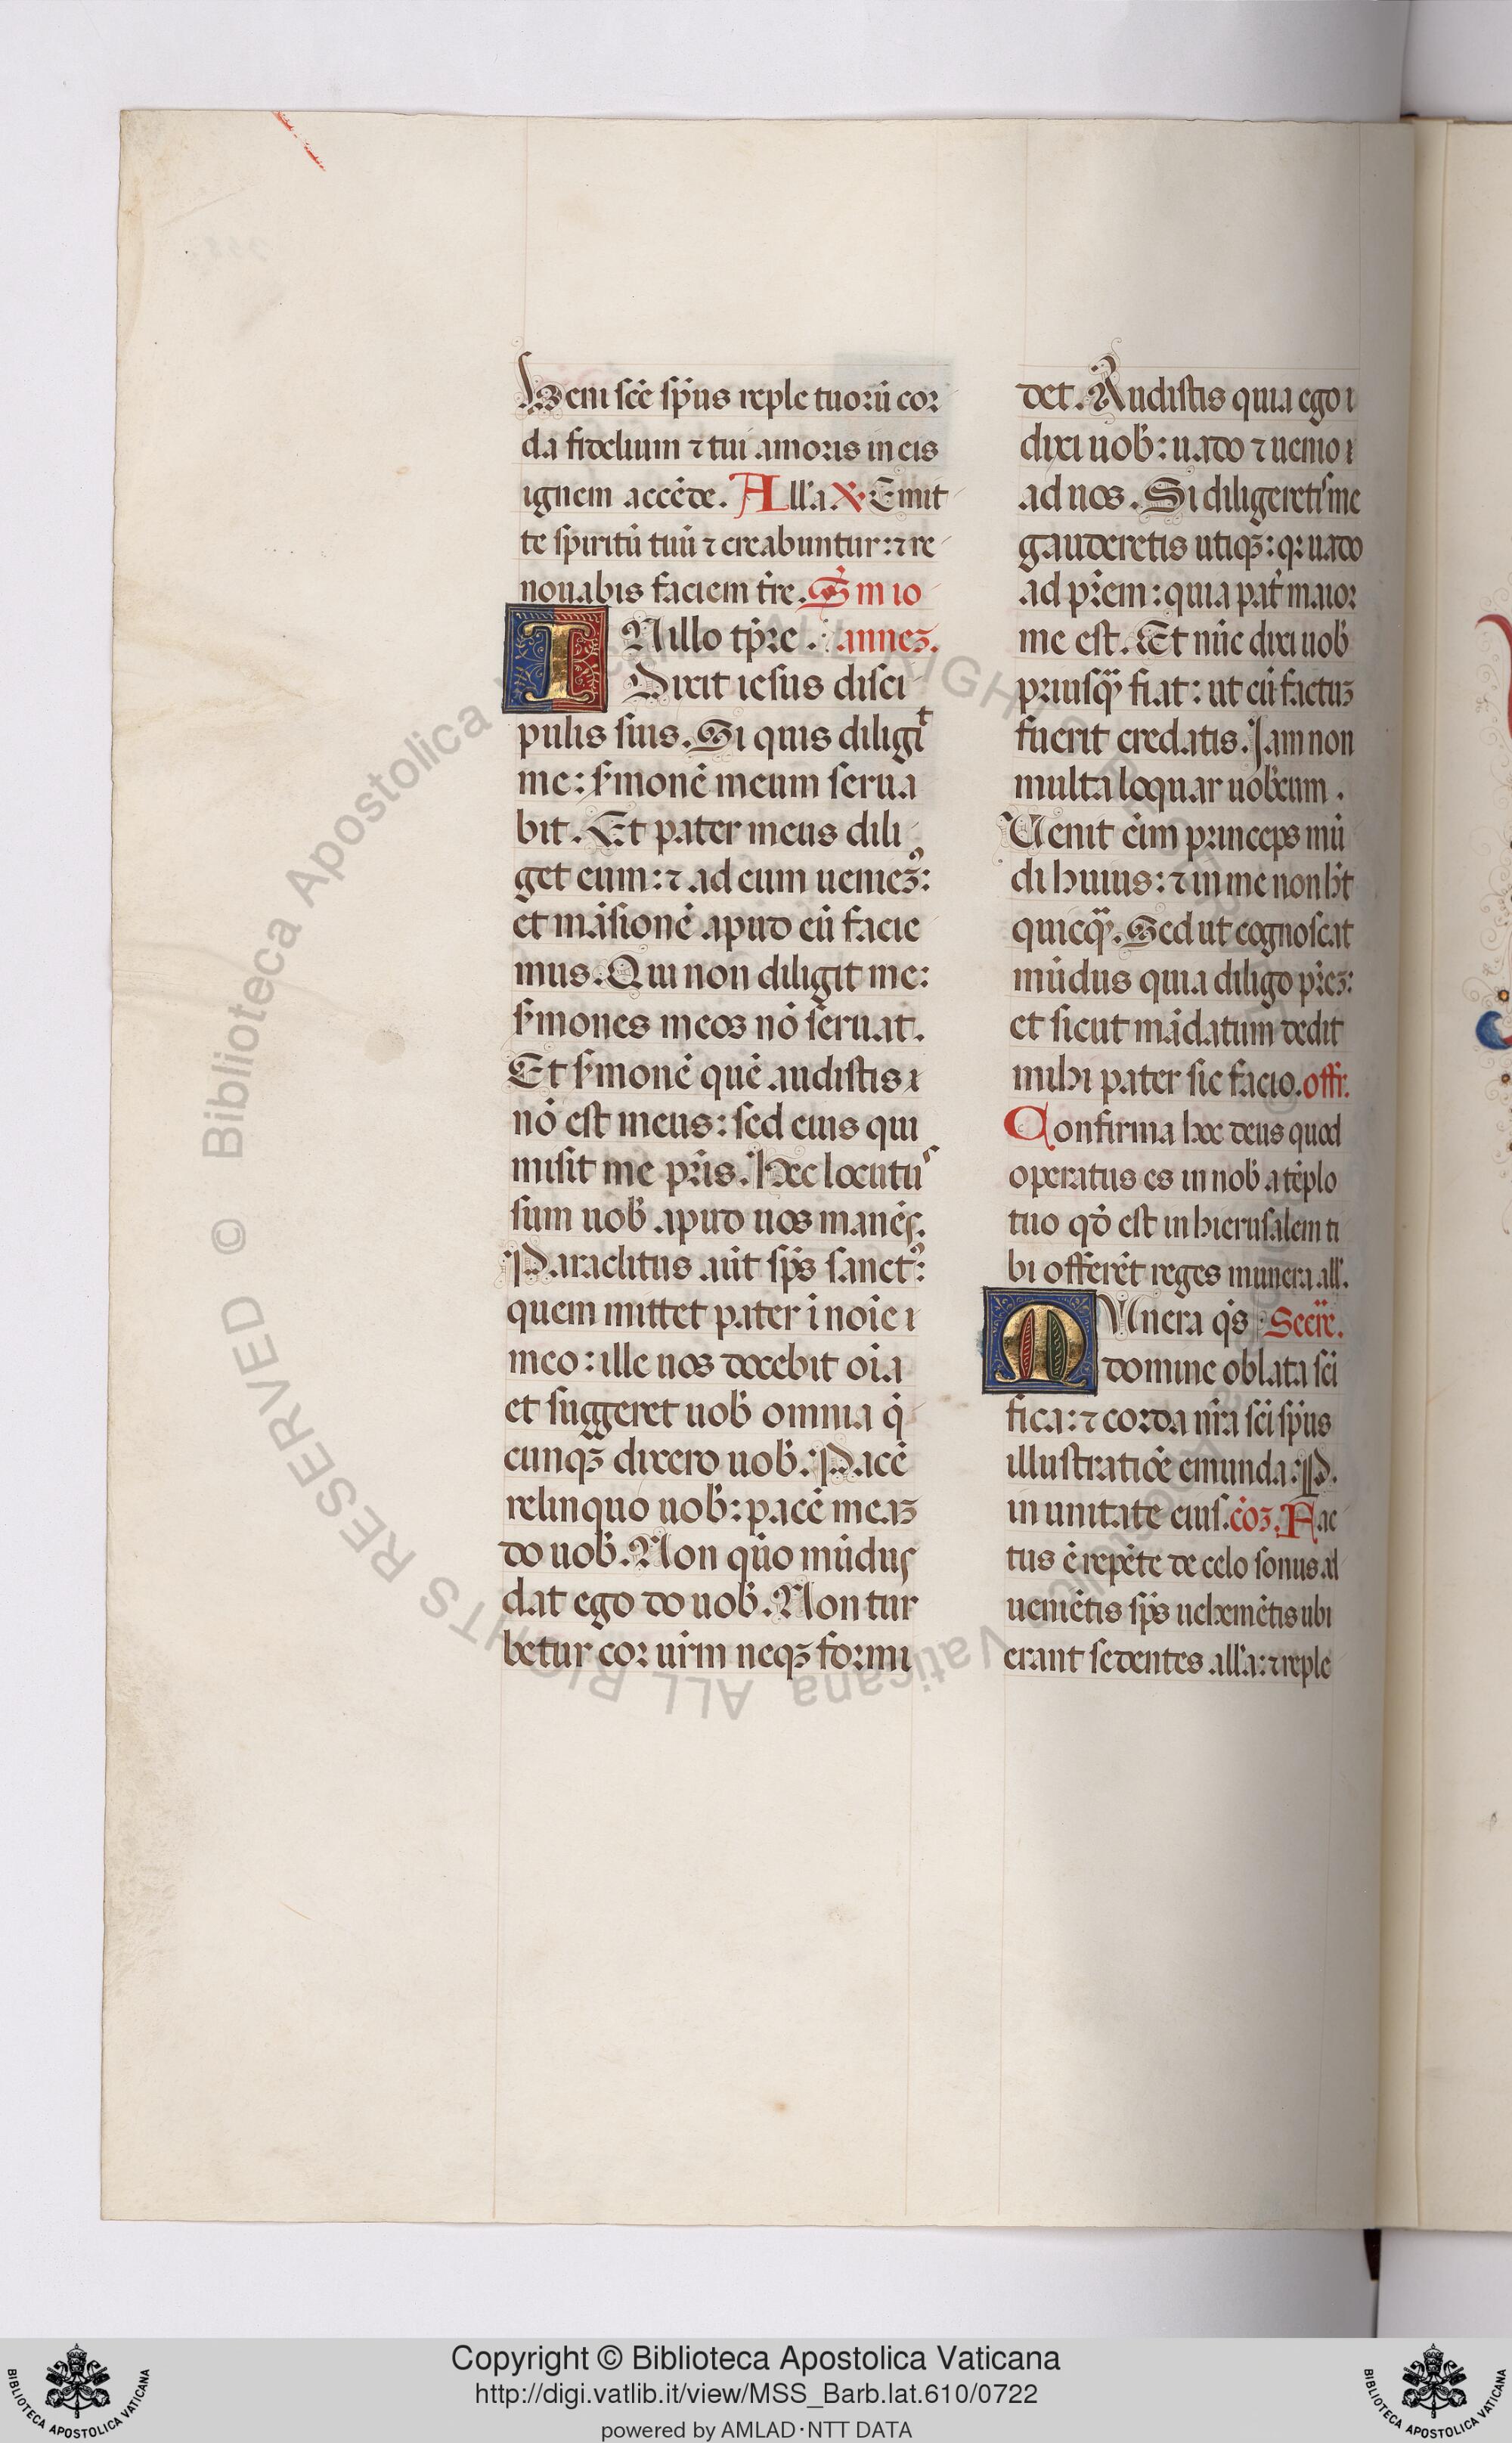 Veni scē sp̄us reple tuorū cor
da fidelium ⁊ tui amoris in eis
ignem accēde. All'a. ℣. Emit
te spiritū tuū ⁊ creabuntur: ⁊ re
nouabis faciem tr̄e. Sm̄ io
IN illo tp̄re. annez.
Dixit iesus disci
pulis suis. Si quis diligit
me: s̄monē meum serua
bit. Et pater meus dili
get eum: ⁊ ad eum ueniem9:
et māsionē apud eū facie
mus. Qui non diligit me:
s̄mones meos nō seruat.
Et s̄monē quē audistis
nō est meus: sed eius qui
misit me pr̄is. Hec locutus
sum uob̄ apud uos manēs.
Paraclitus aūt sp̄s sanct9:
quem mittet pater ī noīe
meo: ille uos docebit oīa
et suggeret uob̄ omnia q̄
cunq3 dixero uob̄. Pacē
relinquo uob̄: pacē meaz
do uob̄. Non quō mūdus
dat ego do uob̄. Non tur
betur cor ur̄m neq3 formi
det. Audistis quia ego
dixi uob̄: uado ⁊ uenio
ad uos. Si diligeretis me
gauderetis utiq3: q2 uado
ad pr̄em: quia pat̄ maior
me est. Et nūc dixi uob̄
priusq̄ fiat: ut cū factuz
fuerit credatis. Iam non
multa loquar uob̄cum.
Uenit eīm princeps mū
di huius: ⁊ in me non h̄t
quicq̄. Sed ut cognoscat
mūdus quia diligo pr̄ez:
et sicut mādatum dedit
mihi pater sic facio. offr̄.
Confirma hoc deus quod
operatus es in nob̄ a tēplo
tuo qd̄ est in hierusalem ti
bi offerēt reges munera all'.
MUnera q̄s Secr̄e.
domine oblata scī
fica: ⁊ corda nr̄a scī sp̄us
illustratiōe emunda: P.
in unitate eius. cōz. Fac
tus ē repēte de celo sonus ad
ueniētis sp̄s uehemētis ubi
erant sedentes all'a: ⁊ reple
© Biblioteca Apostolica Vaticana ALL RIGHTS RESERVED
Copyright © Biblioteca Apostolica Vaticana
http://digi.vatlib.it/view/MSS_Barb.lat.610/0722
powered by AMLAD·NTT DATA
BIBLIOTECA APOSTOLICA VATICANA
BIBLIOTECA APOSTOLICA VATICANA